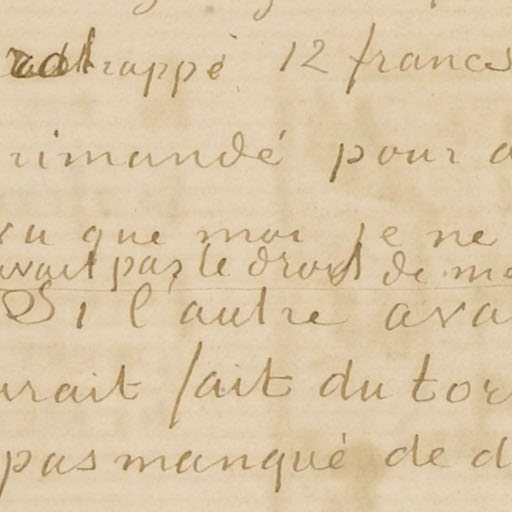 rattrappé 12 francs
rimandé pour
vu que moi je ne
avait pas le droit de me
Si l'autre ava
urait fait du tor
pas manqué de d